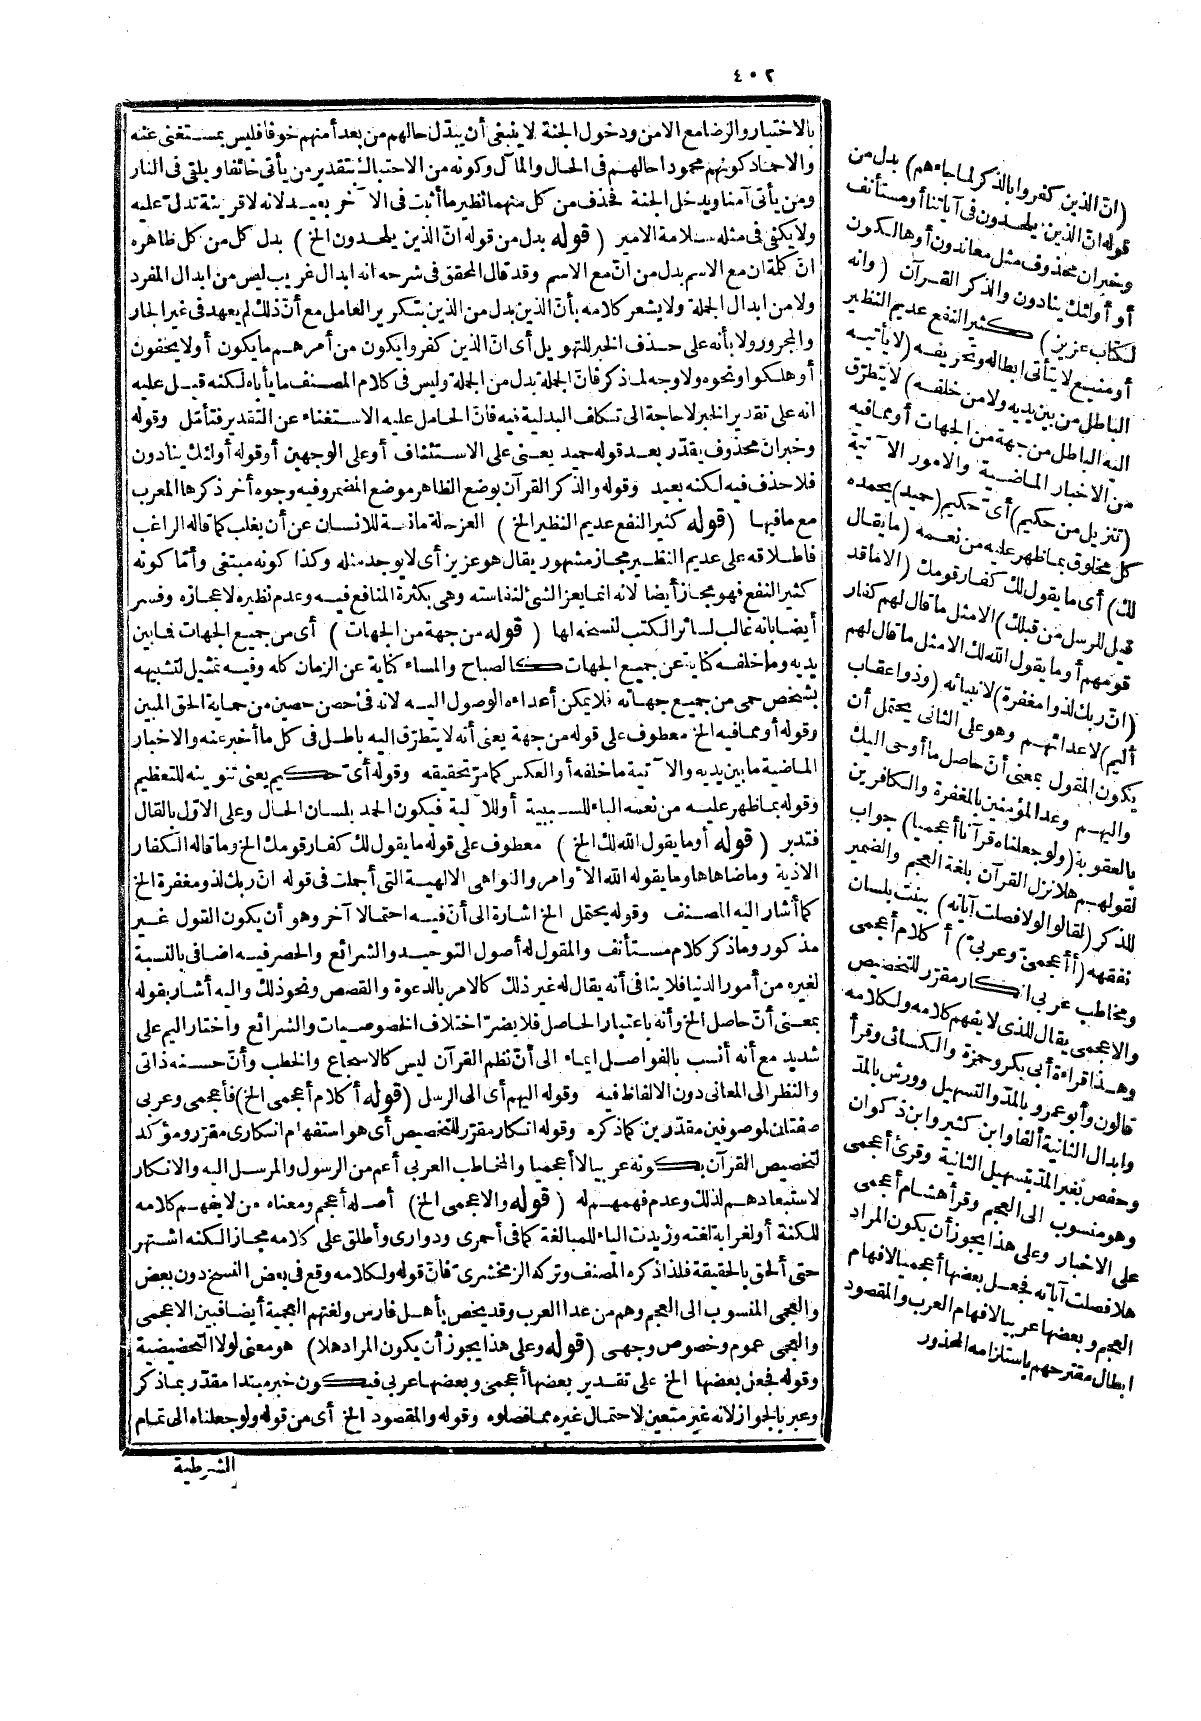 ٤٠٢
بالاختيار والرضا مع الامن ودخول الجنة لا ينبغى أن يبدل حالهم من بعد أمنهم خوفا فليس بمستغنى عنه
والاحماد كونهم محمودا حالهم فى الحال والمآل وكونه من الاحتباك بتقدير من يأتى خائفا ويلقى فى النار
ومن يأتى آمنا ويدخل الجنة فحذف من كل منهما نظير ما أثبت فى الآخر بعيد لانه لا قرينة تدل عليه
ولا يكفى فى مثله سلامة الامير (قوله بدل من قوله انّ الذين يلحدون الخ) بدل كل من كل ظاهره
انّ كلمة ان مع الاسم بدل من انّ مع الاسم وقد قال المحقق فى شرحه انه ابدال غريب ليس من ابدال المفرد
ولا من ابدال الجملة ولا يشعر كلامه بأنّ الذين بدل من الذين بتكرير العامل مع أنّ ذلك لم يعهد فى غير الجار
والمجرور ولا بأنه على حذف الخبر للتهويل أى انّ الذين كفروا يكون من أمرهم ما يكون أو لا يخفون
أو هلكوا ونحوه ولا وجه لما ذكر فانّ الجملة بدل من الجملة وليس فى كلام المصنف ما يأباه لكنه قيل عليه
انه على تقدير الخبر لا حاجة الى تكلف البدلية فيه فانّ الحامل عليه الاستغناء عن التقدير فتأمّل وقوله
وخبر انّ محذوف يقدّر بعد قوله حميد يعنى على الاستئناف أو على الوجهين أو قوله أولئك ينادون
فلا حذف فيه لكنه بعيد وقوله والذكر القرآن بوضع الظاهر موضع المضمر وفيه وجوه أخر ذكرها المعرب
مع ما فيها (قوله كثير النفع عديم النظير الخ) العز حالة مانعة للانسان عن أن يغلب كما قاله الراغب
فاطلاقه على عديم النظير مجاز مشهور يقال هو عزيز أى لا يوجد مثله وكذا كونه مبتغى وأمّا كونه
كثير النفع فهو مجاز أيضا لانه انما يعز الشئ لنفاسته وهى بكثرة المنافع فيه وعدم نظيره لاعجازه وفسر
أيضا بانه غالب لسائر الكتب لنسخه لها (قوله من جهة من الجهات) أى من جميع الجهات فما بين
يديه وما خلفه كناية عن جميع الجهات كالصباح والمساء كناية عن الزمان كله وفيه تمثيل لتشبيهه
بشخص حمى من جميع جهاته فلا يمكن أعداءه الوصول اليه لانه فى حصن حصين من حماية الحق المبين
وقوله أو مما فيه الخ معطوف على قوله من جهة يعنى أنه لا يتطرّق اليه باطل فى كل ما أخبر عنه والاخبار
الماضية ما بين يديه والآتية ما خلفه أو العكس كما مرّ تحقيقه وقوله أىّ حكيم يعنى تنوينه للتعظيم
وقوله بما ظهر عليه من نعمه الباء للسببية أو للآلية فيكون الحمد بلسان الحال وعلى الاوّل بالقال
فتدبر (قوله أو ما يقول الله لك الخ) معطوف على قوله ما يقول لك كفار قومك الخ وما قاله الكفار
الاذية وما ضاهاها وما يقوله الله الأوامر والنواهى الالهية التى أجملت فى قوله انّ ربك لذو مغفرة الخ
كما أشار اليه المصنف وقوله يحتمل الخ اشارة الى أنّ فيه احتمالا آخر وهو أن يكون القول غير
مذكور وما ذكر كلام مستأنف والمقول له أصول التوحيد والشرائع والحصر فيه اضافى بالنسبة
لغيره من أمور الدنيا فلا ينافى أنه يقال له غير ذلك كالامر بالدعوة والقصص ونحو ذلك واليه أشار بقوله
بمعنى أنّ حاصل الخ وأنه باعتبار الحاصل فلا يضرّ اختلاف الخصوصيات والشرائع واختار اليم على
شديد مع أنه أنسب بالفواصل ايماء الى أنّ نظم القرآن ليس كالاسجاع والخطب وأنّ حسنه ذاتى
والنظر الى المعانى دون الالفاظ فيه وقوله اليهم أى الى الرسل (قوله أكلام أعجمى الخ) فأعجمى وعربى
صفتان لموصوفين مقدّرين كما ذكره وقوله انكار مقرّر للتخصيص أى هو استفهام انكارى مقرّر ومؤكد
لتخصيص القرآن بكونه عربيا لا أعجميا والمخاطب العربى أعم من الرسول والمرسل اليه والانكار
لاستبعادهم لذلك وعدم فهمهم له (قوله والاعجمى الخ) أصله أعجم ومعناه من لا يفهم كلامه
للكنة أو لغرابة لغته وزيدت الياء للمبالغة كما فى أحمرى ودوارى وأطلق على كلامه مجازا لكنه اشتهر
حتى ألحق بالحقيقة فلذا ذكره المصنف وتركه الزمخشرىّ فانّ قوله ولكلامه وقع فى بعض النسخ دون بعض
والعجمى المنسوب الى العجم وهم من عدا العرب وقد يخص بأهل فارس ولغتهم العجمية أيضا فبين الاعجمى
والعجمى عموم وخصوص وجهى (قوله وعلى هذا يجوز أن يكون المراد هلا) هو معنى لولا التحضيضية
وقوله فجعل بعضها الخ على تقدير بعضها أعجمى وبعضها عربى فيكون خبر مبتدا مقدّر بما ذكر
وعبر بالجواز لانه غير متعين لاحتمال غيره مما فصلوه وقوله والمقصود الخ أى من قوله ولو جعلناه الى تمام
الشرطية
(انّ الذين كفروا بالذكر لما جاءهم) بدل من
قوله انّ الذين يلحدون فى آياتنا أو مستأنف
وخبر ان محذوف مثل معاندون أو هالكون
أو أولئك ينادون والذكر القرآن (وانه
لكتاب عزيز) كثير النفع عديم النظير
أو منيع لا يتأتى ابطاله وتحريفه (لا يأتيه
الباطل من بين يديه ولا من خلفه) لا يتطرّق
اليه الباطل من جهة من الجهات أو مما فيه
من الاخبار الماضية والامور الآتية
(تنزيل من حكيم) أىّ حكيم (حميد) يحمده
كل مخلوق بما ظهر عليه من نعمه (ما يقال
لك) أى ما يقول لك كفار قومك (الا ما قد
قيل للرسل من قبلك) الا مثل ما قال لهم كفار
قومهم أو ما يقول الله لك الا مثل ما قال لهم
(انّ ربك لذو مغفرة) لانبيائه (وذو عقاب
أليم) لاعدائهم وهو على الثانى يحتمل أن
يكون المقول بمعنى أنّ حاصل ما أوحى اليك
واليهم وعد المؤمنين بالمغفرة والكافرين
بالعقوبة (ولو جعلناه قرآنا أعجميا) جواب
لقولهم هلا نزل القرآن بلغة العجم والضمير
للذكر (لقالوا لولا فصلت آياته) بينت بلسان
نفقهه (أأعجمىّ وعربىّ) أكلام أعجمى
ومخاطب عربى انكار مقرّر للتخصيص
والاعجمى يقال للذى لا يفهم كلامه ولكلامه
وهذا قراءة أبى بكر وحمزة والكسائى وقرأ
قالون وأبو عمرو بالمدّ والتسهيل وورش بالمدّ
وابدال الثانية ألفا وابن كثير وابن ذكوان
وحفص بغير المدّ بتسهيل الثانية وقرئ أعجمى
وهو منسوب الى العجم وقرأ هشام أعجمى
على الاخبار وعلى هذا يجوز أن يكون المراد
هلا فصلت آياته فجعل بعضها أعجميا لافهام
العجم وبعضها عربيا لافهام العرب والمقصود
ابطال مقترحهم باستلزامه المحذور